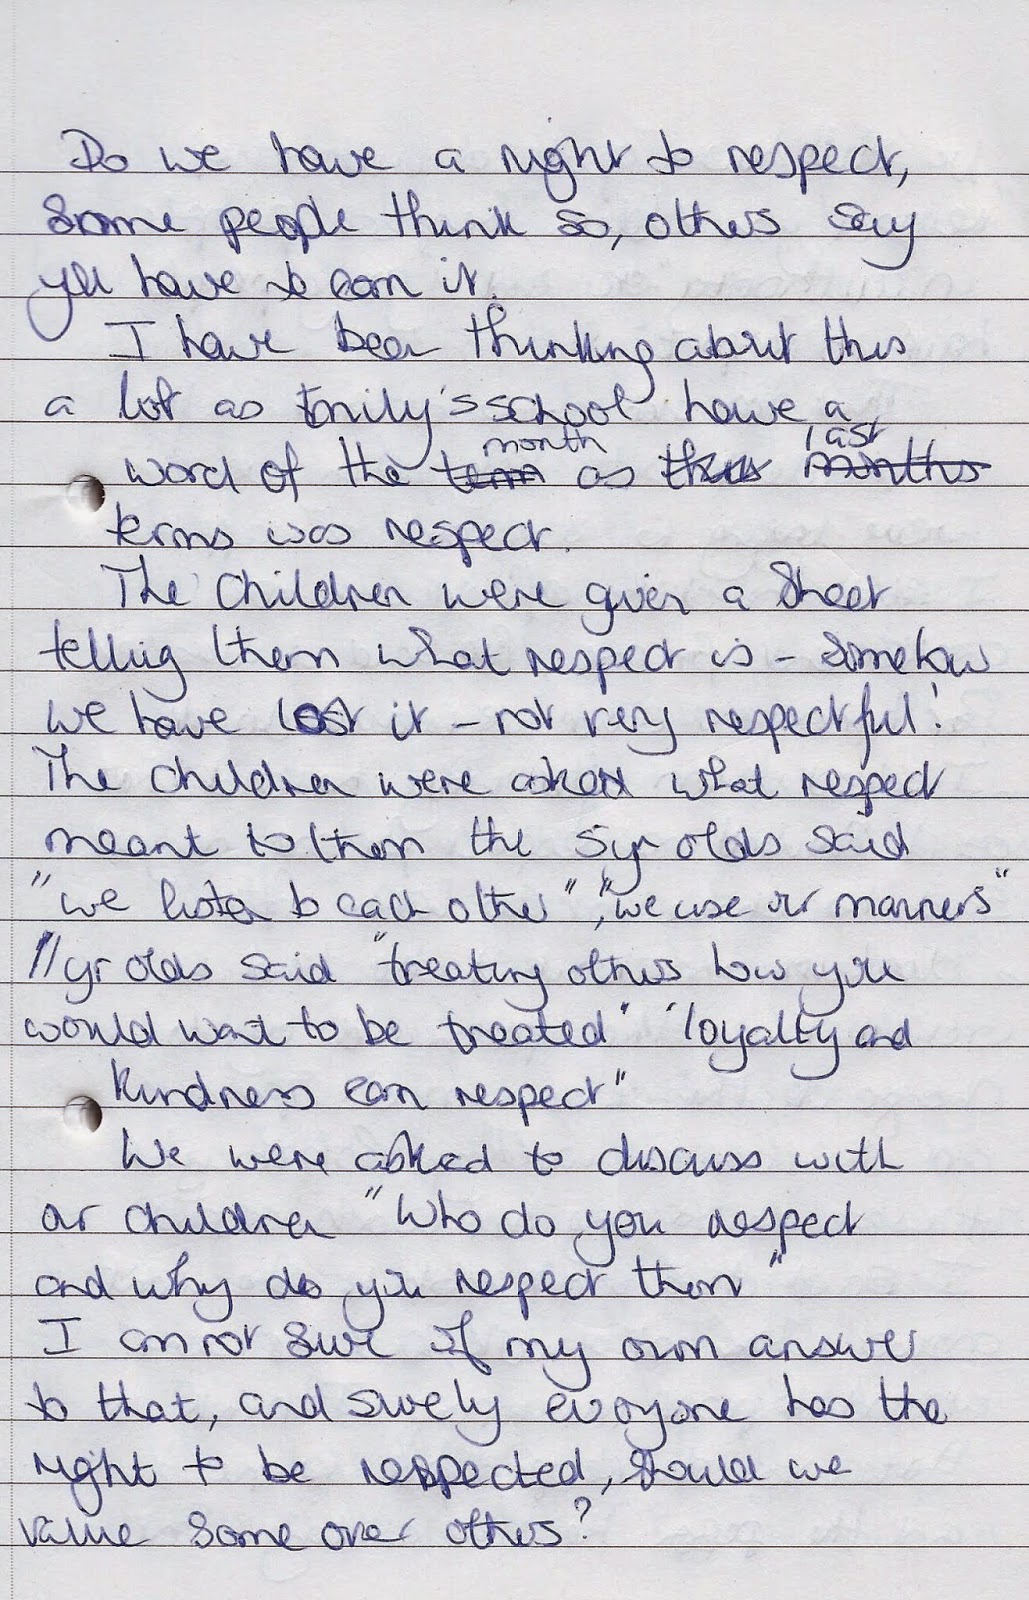 Do we have a right to respect,
Some people think so, others say
you have to earn it.
I have been thinking about this
a lot as Emily's school have a
word of the ~~term~~ month as ~~this~~ ~~months~~ last
terms was respect.
The children were given a sheet
telling them what respect is – somehow
we have lost it – not very respectful!
The children were asked what respect
meant to them the 5yr olds said
"we listen to each other", "we use our manners"
11yr olds said "treating others how you
would want to be treated" "loyalty and
kindness earn respect"
We were asked to discuss with
our children "Who do you respect
and why do you respect them"
I am not sure of my own answer
to that, and surely everyone has the
right to be respected, should we
value some over others?